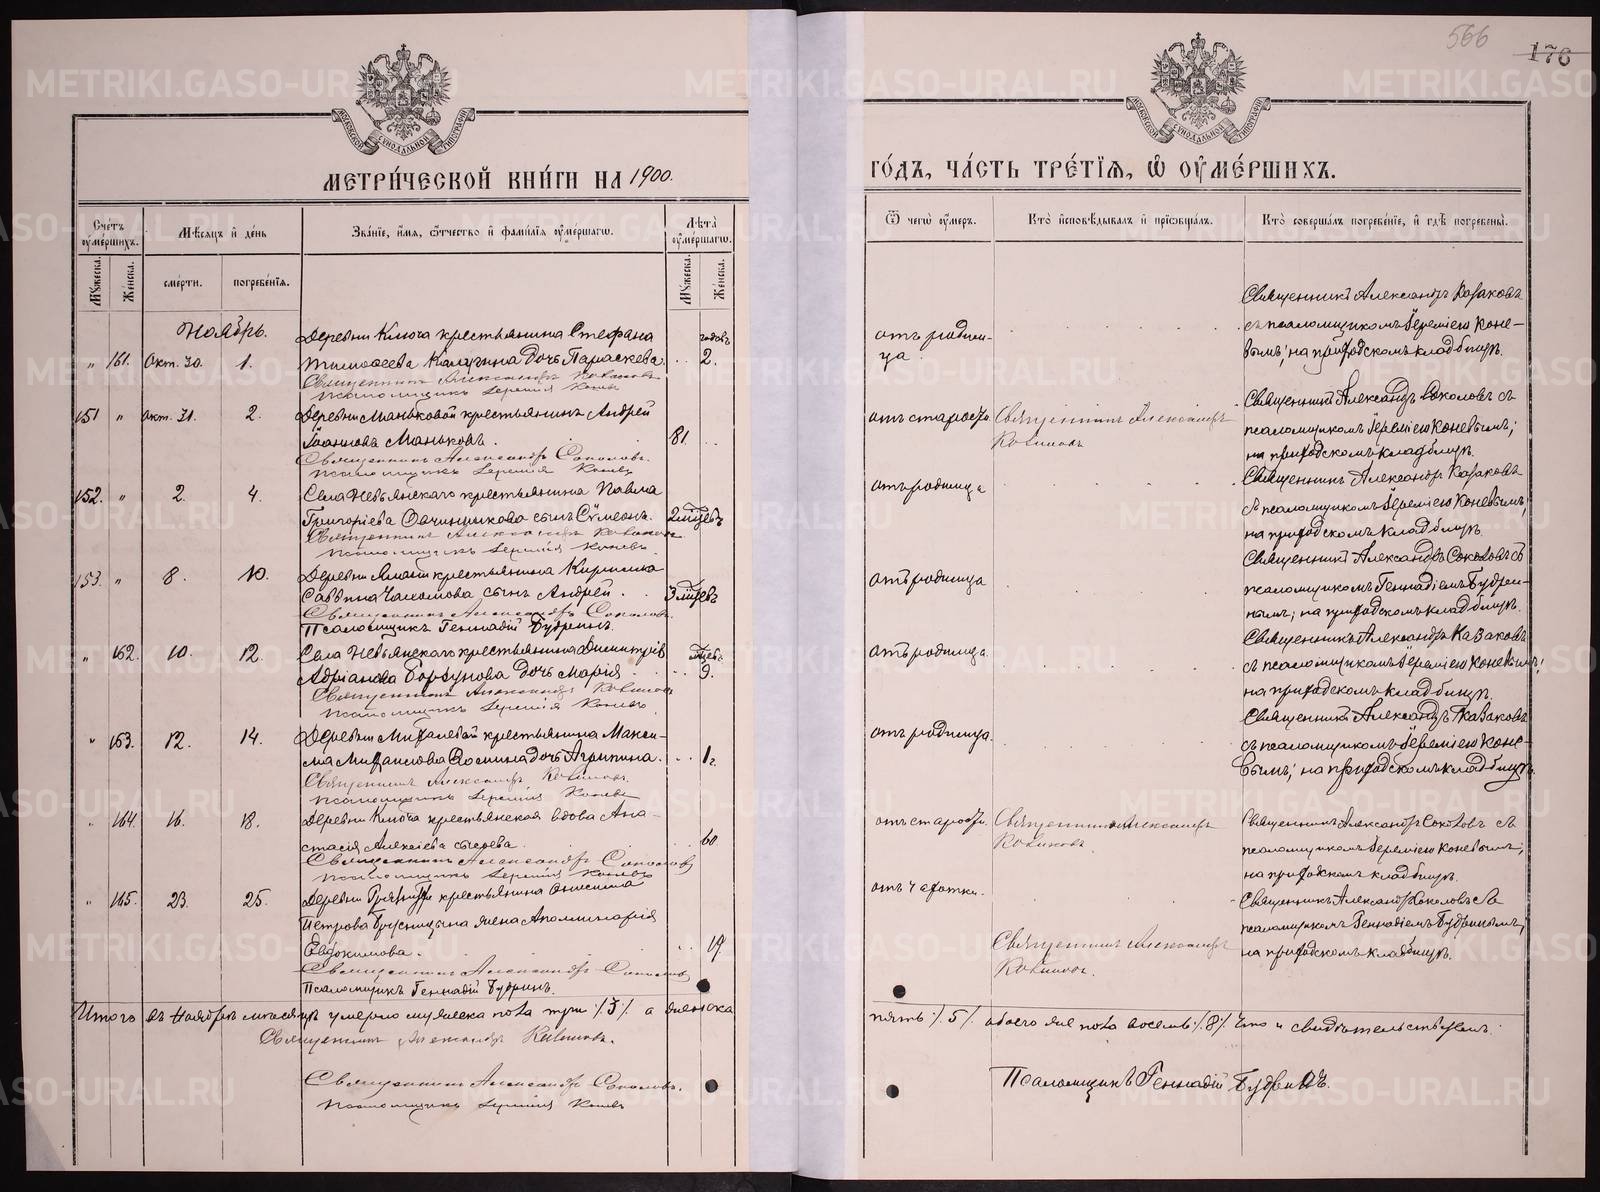 566
176
МЕТРИЧЕСКОЙ КНИГИ НА 1900.
ГОДЪ, ЧАСТЬ ТРЕТІЯ, Ѿ ОУМЕРШИХЪ.
Счетъ оумершихъ.
Мѣсяцъ и день
Званіе, имя, отчество и фамилія оумершагѡ.
Лѣта оумершагѡ.
Мужеска.
Женска.
смерти.
погребенія.
Мужеска.
Женска.
Ѿ чегѡ оумеръ.
Кто исповѣдывалъ и пріобщалъ.
Кто совершалъ погребеніе, и гдѣ погребены.
Ноябрь.
Деревни Ключа крестьянина Стефана
годовъ
" 161. Окт. 30. 1.
Тимофеева Калугина дочь Параскева. 2.
Священникъ Александръ Казаковъ
Псаломщикъ Іеремія Коневъ
отъ родим-
ца
Священникъ Александръ Казаковъ
съ псаломщикомъ Іереміею Коне-
вымъ; на приходскомъ кладбищѣ.
151 " Окт. 31. 2.
Деревни Маньковой крестьянинъ Андрей
Іоанновъ Маньковъ. 81.
Священникъ Александръ Соколовъ.
Псаломщикъ Іеремія Коневъ
отъ старости
Священникъ Александръ
Казаковъ
Священникъ Александръ Соколовъ съ
псаломщикомъ Іереміею Коневымъ;
на приходскомъ кладбищѣ.
152. " 2. 4.
Села Невьянскаго крестьянина Павла
Григоріева Овчинникова сынъ Сѵмеонъ. 2 мѣсяцевъ
Священникъ Александръ Казаковъ
Псаломщикъ Іеремія Коневъ
отъ родимца
Священникъ Александръ Казаковъ
съ псаломщикомъ Іереміею Коневымъ;
на приходскомъ кладбищѣ.
153. " 8. 10.
крестьянина Кирилла
Саввина сынъ Андрей. 3 мѣсяцевъ
Священникъ Александръ Соколовъ.
Псаломщикъ Геннадій Будринъ.
отъ родимца
Священникъ Александръ Соколовъ съ
псаломщикомъ Геннадіемъ Будри-
нымъ; на приходскомъ кладбищѣ.
" 162. 10. 12.
Села Невьянскаго крестьянина Димитрія
Адріанова дочь Марія. 9.
Священникъ Александръ Казаковъ
Псаломщикъ Іеремія Коневъ.
отъ родимца.
Священникъ Александръ Казаковъ
съ псаломщикомъ Іереміею Коневымъ;
на приходскомъ кладбищѣ.
" 163. 12. 14.
крестьянина Макси-
ма дочь Агрипина. 1 г.
Священникъ Александръ Казаковъ.
Псаломщикъ Іеремія Коневъ
отъ родимца.
Священникъ Александръ Казаковъ
съ псаломщикомъ Іереміею Коне-
вымъ; на приходскомъ кладбищѣ.
" 164. 16. 18.
Деревни Ключа крестьянская вдова Ана-
стасія Алексіева 60
Священникъ Александръ Соколовъ
Псаломщикъ Іеремія Коневъ
отъ старости.
Священникъ Александръ
Казаковъ.
Священникъ Александръ Соколовъ съ
псаломщикомъ Іереміею Коневымъ;
на приходскомъ кладбищѣ.
" 165. 23. 25.
Деревни крестьянина Онисима
Петрова Брусницына жена Аполлинарія
Евдокимова. 19.
Священникъ Александръ Соколовъ
Псаломщикъ Геннадій Будринъ.
отъ чахотки.
Священникъ Александръ
Казаковъ.
Священникъ Александръ Соколовъ съ
псаломщикомъ Геннадіемъ Будринымъ;
на приходскомъ кладбищѣ.
Итого въ Ноябрѣ мѣсяцѣ умерло мужеска пола три /3/ а женска
пять /5/ обоего же пола восемь /8/ что и свидѣтельствуемъ:
Священникъ Александръ Казаковъ.
Священникъ Александръ Соколовъ.
Псаломщикъ Іеремія Коневъ
Псаломщикъ Геннадій Будринъ.